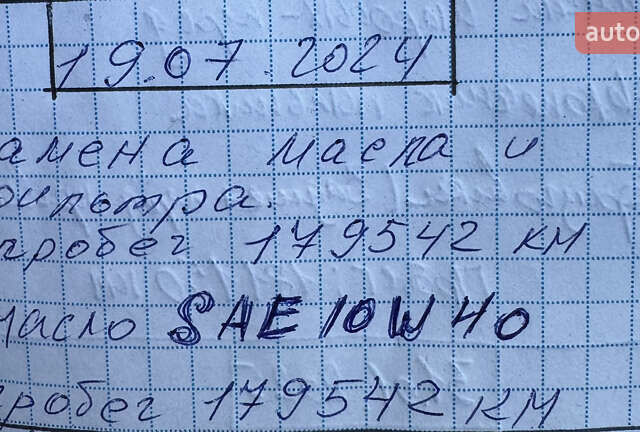 auto
19.07.2024
амена масла и
фильтра.
пробег 179542 км
масло SAE 10W40
пробег 179542 км